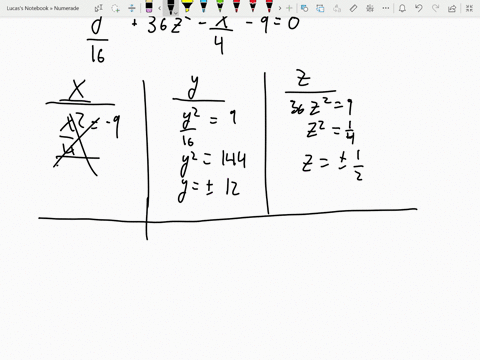 Lucas's Notebook » Numerade
y²/16 + 36z² - x²/4 - 9 = 0
x
x²/4 = -9
y
y²/16 = 9
y² = 144
y = ± 12
z
36z² = 9
z² = 1/4
z = ± 1/2